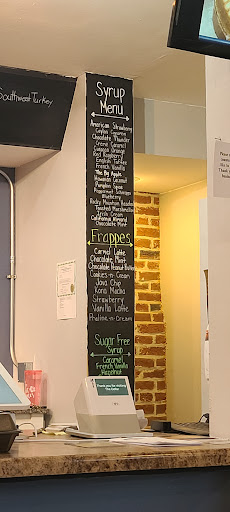 Southwest Turkey
Syrup
Menu
American Strawberry
Chocolate Thunder
Creme Caramel
Red Raspberry
English Toffee
French Vanilla
The Big Apple
Hawaiian Coconut
Pumpkin Spice
Peppermint Schnapps
Blueberry
Rocky Mountain
Toasted Marshmallow
Irish Cream
California Almond
Chocolate Mint
Frappes
Carmel Latte
Chocolate Mint
Chocolate Peanut Butter
Cookies-n-Cream
Java Chip
Kona Mocha
Strawberry
Vanilla Latte
Praline-n-Cream
Sugar Free
Syrup
Caramel
French Vanilla
Hazelnut
Thank you for visiting